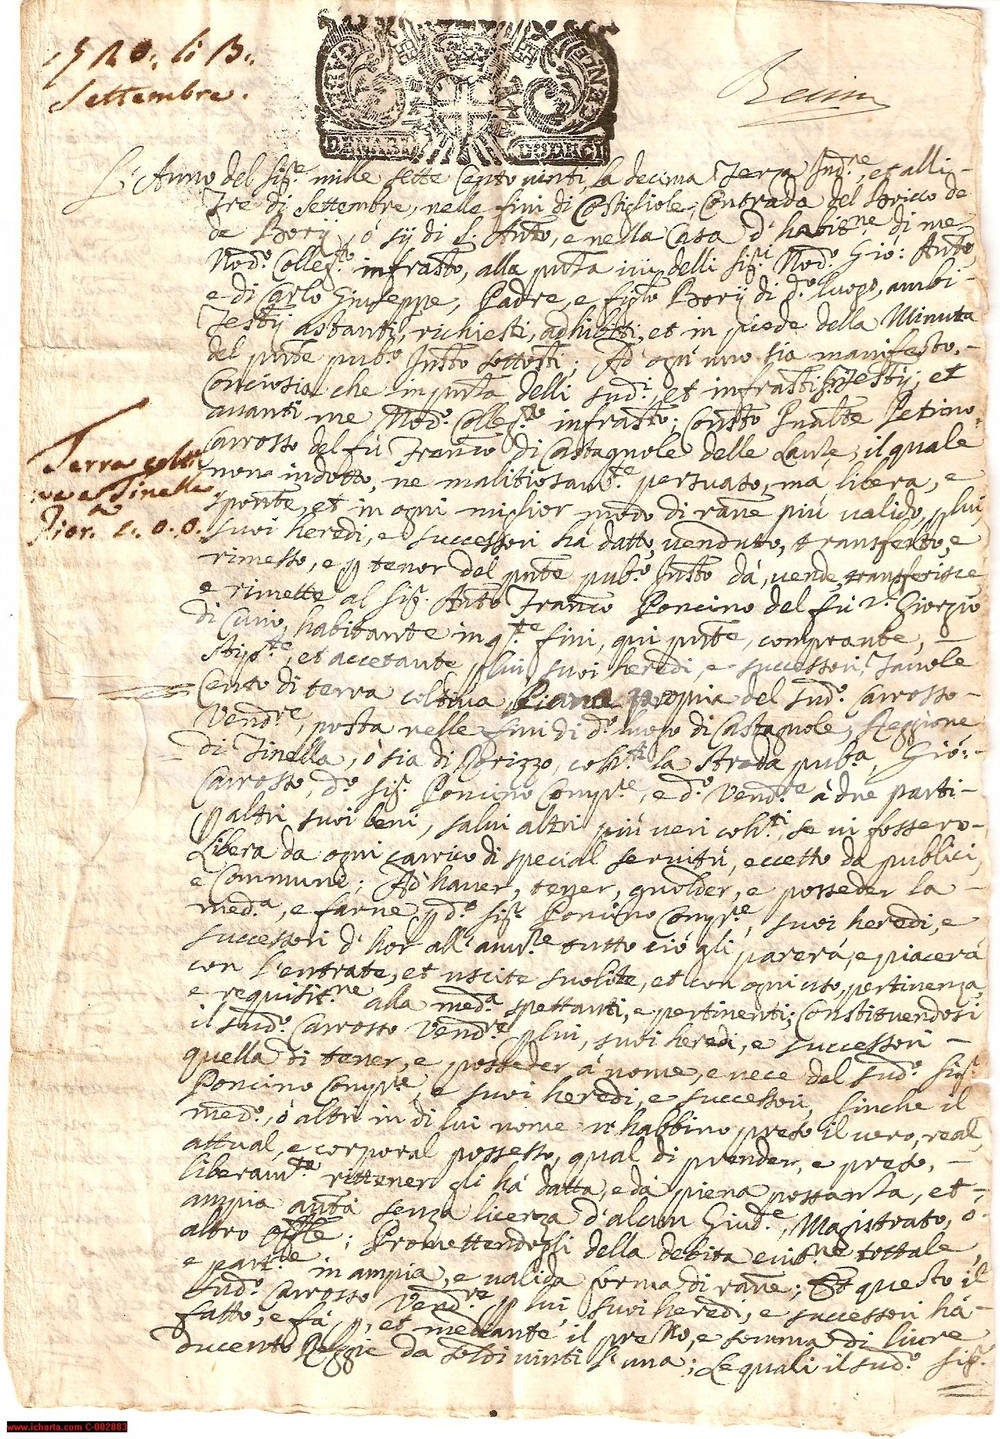 1720. li 3.
Settembre.
DENARI DODECI
L'Anno del Sig.re mille sette cento vinti la decima Terza Ind.ne, et alli
Tre di Settembre, nelle fini di Costigliole, Contrada del Bricco de
de Borij, ò sij di S. Anto, e nella Casa d'habit.ne di me
Nod.o Colleg.to infrasto, alla pnza ivi delli Sig.ri Nod.o Gio: Anto
e di Carlo Giuseppe, Padre, e figlio Borij di d.o luogo, ambi
Testij astanti, richiesti, adhibiti, et in piede della Minuta
del pnte pub.o Instto sottosti; Ad ogn'uno sia manifesto,
Conciosia che in pnza delli sud.i, et infrasti Sig.ri Testij; et
avanti me Nod.o Colleg.to infrasto; Consto Petrino
Carrosso del fù Franco di Castagnole delle Lanze, il quale
non indotto, ne malitiosam.te persuaso, mà libera, e
sponte, et in ogni miglior modo di rane più valido, p lui,
suoi heredi, e successori hà datto, venduto, transferto, e
rimesso, e p tenor del pnte pub.o Instto dà, vende, transferisce
e rimette al Sig. Anto Franco Poncino del fù S. Giorgio
di Cunio, habitante in q.te fini, qui pnte, comprante,
stip.te, et accetante p lui, suoi heredi, e successori, Tavole
Cento di terra coltiva, Piana propria del sud.o Carrosso
Vend.re, posta nelle fini di d.o luogo di Castagnole, Reggione
di Tinella, ò sia di Borizzo, coh.ti la strada pub.a, Gio:
Carrosso, d.o Sig. Poncino Comp.re, e d.o Vend.re à due parti
p altri suoi beni, salvi altri più veri coh.ti, se vi fossero
Libera da ogni carrico di special servitù, eccetto da publici,
e Communi; Ad haver, tener, gualder, e posseder la
med.a, e farne p d.o Sig. Poncino Comp.re, suoi heredi, e
successori d'hor all'avv.re tutto ciò gli parerà, e piacerà
con l'entrate, et uscite suolite, et con ogni uso, pertinenza,
e requisit.ne alla med.a spettanti, e pertinenti; Constituendosi
il sud.o Carrosso Vend.re p lui, suoi heredi, e successori
quella di tener, e posseder à nome, e vece del sud.o Sig.
Poncino Comp.re, e suoi heredi, e successori, sinche il
med.o, ò altri in di lui nome n'habbino preso il vero, real,
attual, e corporal possesso, qual di prender, e preso,
liberam.te rittener gli hà datta, e dà piena possanza, et
ampia auttà senza licenza d'alcun Giud.e, Magistrato, ò
altro offle; Promettendogli della debita evit.ne tottale,
e part.le in ampia, e valida forma di rane; Et questo il
sud.o Carrosso Vend.re p lui, suoi heredi, e successori hà
fatto, e fà p, et mediante il prezzo, e somma di livre
ducento Reggie da soldi vinti l'una; Le quali il sud.o Sig.
Terra colti
va a Tinella
Fior.
www.icharta.com C-002883